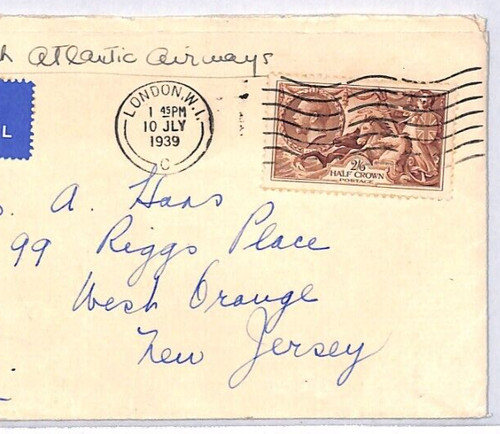 Atlantic Airways
LONDON. W.1.
1 45PM
10 JLY
1939
C
2/6
HALF CROWN
POSTAGE
L
A. Haas
99 Riggs Place
West Orange
New Jersey